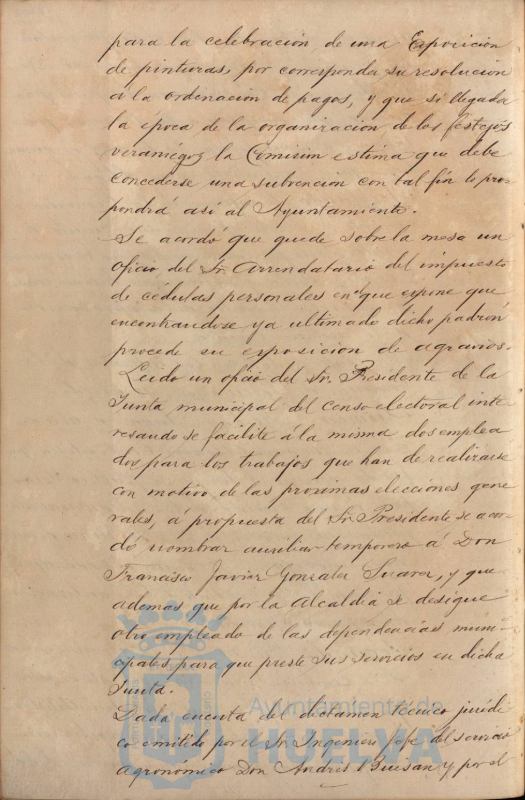 para la celebración, de una Exposición
de pinturas, por corresponda su resolucion
á la ordenacion de pagos, y que si llegada
la epoca de la organizacion de los festejos
veraniegos la Comisión estima que debe
concederse una subvencion con tal fin lo pro-
pondrá así al Ayuntamiento.
Se acordó que quede sobre la mesa un
oficio del Sr. Arrendatario del impuesto
de cédulas personales en el que expone que
encontrandose ya ultimado dicho padron
procede su exposicion de agravios.
Leido un oficio del Sr. Presidente de la
Junta municipal del Censo electoral inte
resando se facilite á la misma dos emplea
dos para los trabajos que han de realizarse
con motivo de las proximas elecciones gene
rales, á propuesta del Sr. Presidente se acor-
dó nombrar auxiliar temporero á Don
Francisco Javier Gonzalez Suarez, y que
ademas que por la Alcaldia se designe
otro empleado de las dependencias muni-
cipales, para que preste sus servicios en dicha
Junta.
Dada cuenta del dictamen técnico juridi
co emitido por el Sr. Ingeniero Jefe del servicio
agronómico Don Andres y por el
Ayuntamiento de
HUELVA